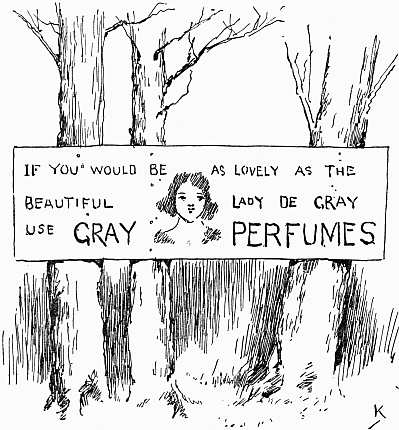 IF YOU WOULD BE AS LOVELY AS THE
BEAUTIFUL LADY DE GRAY
USE GRAY PERFUMES
K